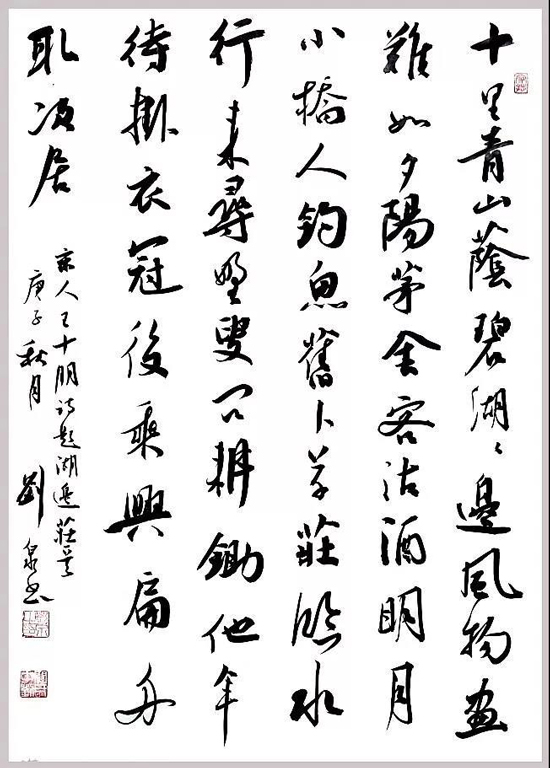 十里青山蔭碧湖〻邊風物畫
難如夕陽茅舍客沽酒明月
小橋人釣魚舊卜草莊臨水
行来尋野叟问耕鋤他年
待掛衣冠後乘興扁舟
取次居
宋人王十朋詩題湖邊莊
庚子秋月 劉泉書